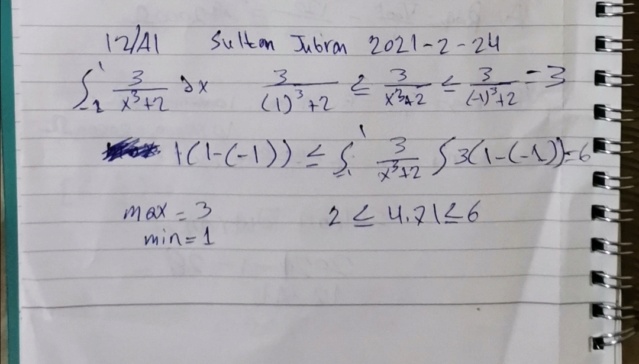 12/A1 Sultan Jubran 2021-2-24
∫₋₁¹ 3/(x³+2) dx 3/((1)³+2) ≤ 3/(x³+2) ≤ 3/((-1)³+2) = 3
1(1-(-1)) ≤ ∫₋₁¹ 3/(x³+2) ≤ 3(1-(-1)) = 6
max = 3 2 ≤ 4.21 ≤ 6
min = 1